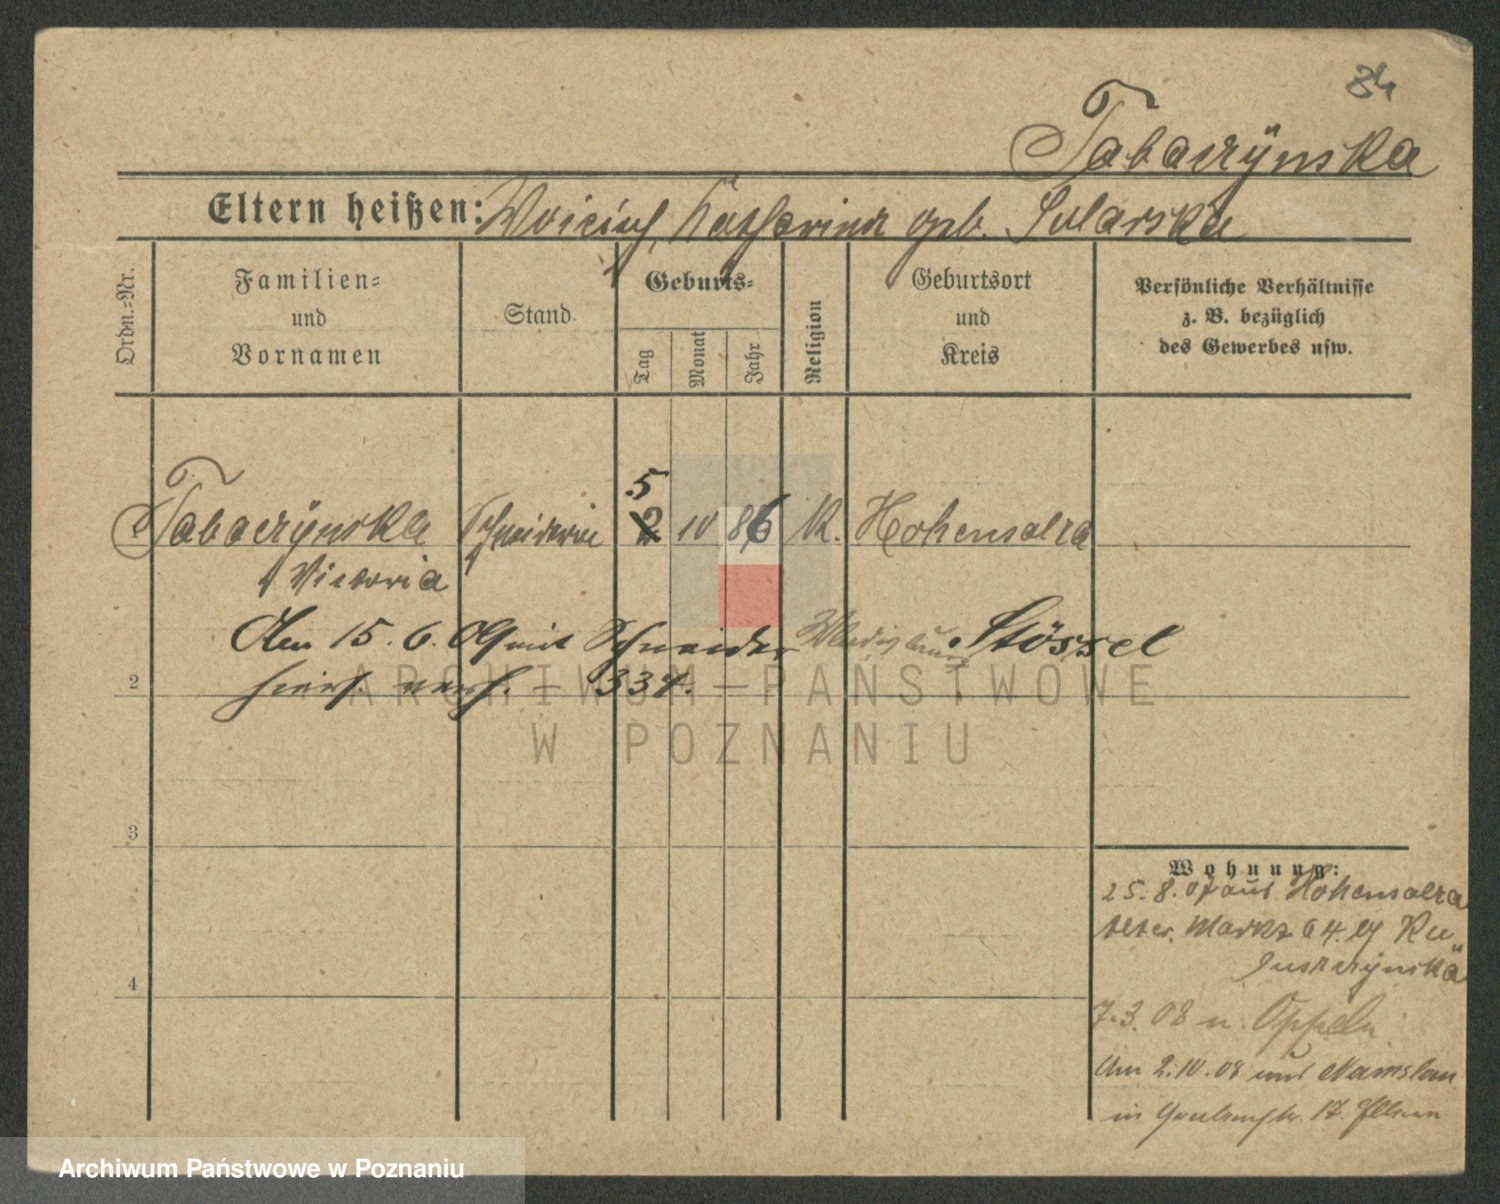 84
Tabaczÿnska
Eltern heißen: Woicieh, Katharina geb. Sularska
Ordn.=Nr.
Familien=
und
Vornamen
Stand
Geburts=
Tag
Monat
Jahr
Religion
Geburtsort
und
Kreis
Persönliche Verhältnisse
z. B. bezüglich
des Gewerbes usw.
5
1 Tabaczÿnska Schneiderin 2 10 86 K. Hohensalza
Victoria
Den 15. 6. 09 mit Schneider Wladislaus Stössel
2 hiers. verh. – 334. –
3
4
Wohnung:
25. 8. 07 aus Hohensalza
Alter Markt 64
7. 3. 08 n. Oppeln
Am 2. 10. 08 aus Namslau
in 17. Eltern
ARCHIWUM PAŃSTWOWE
W POZNANIU
Archiwum Państwowe w Poznaniu